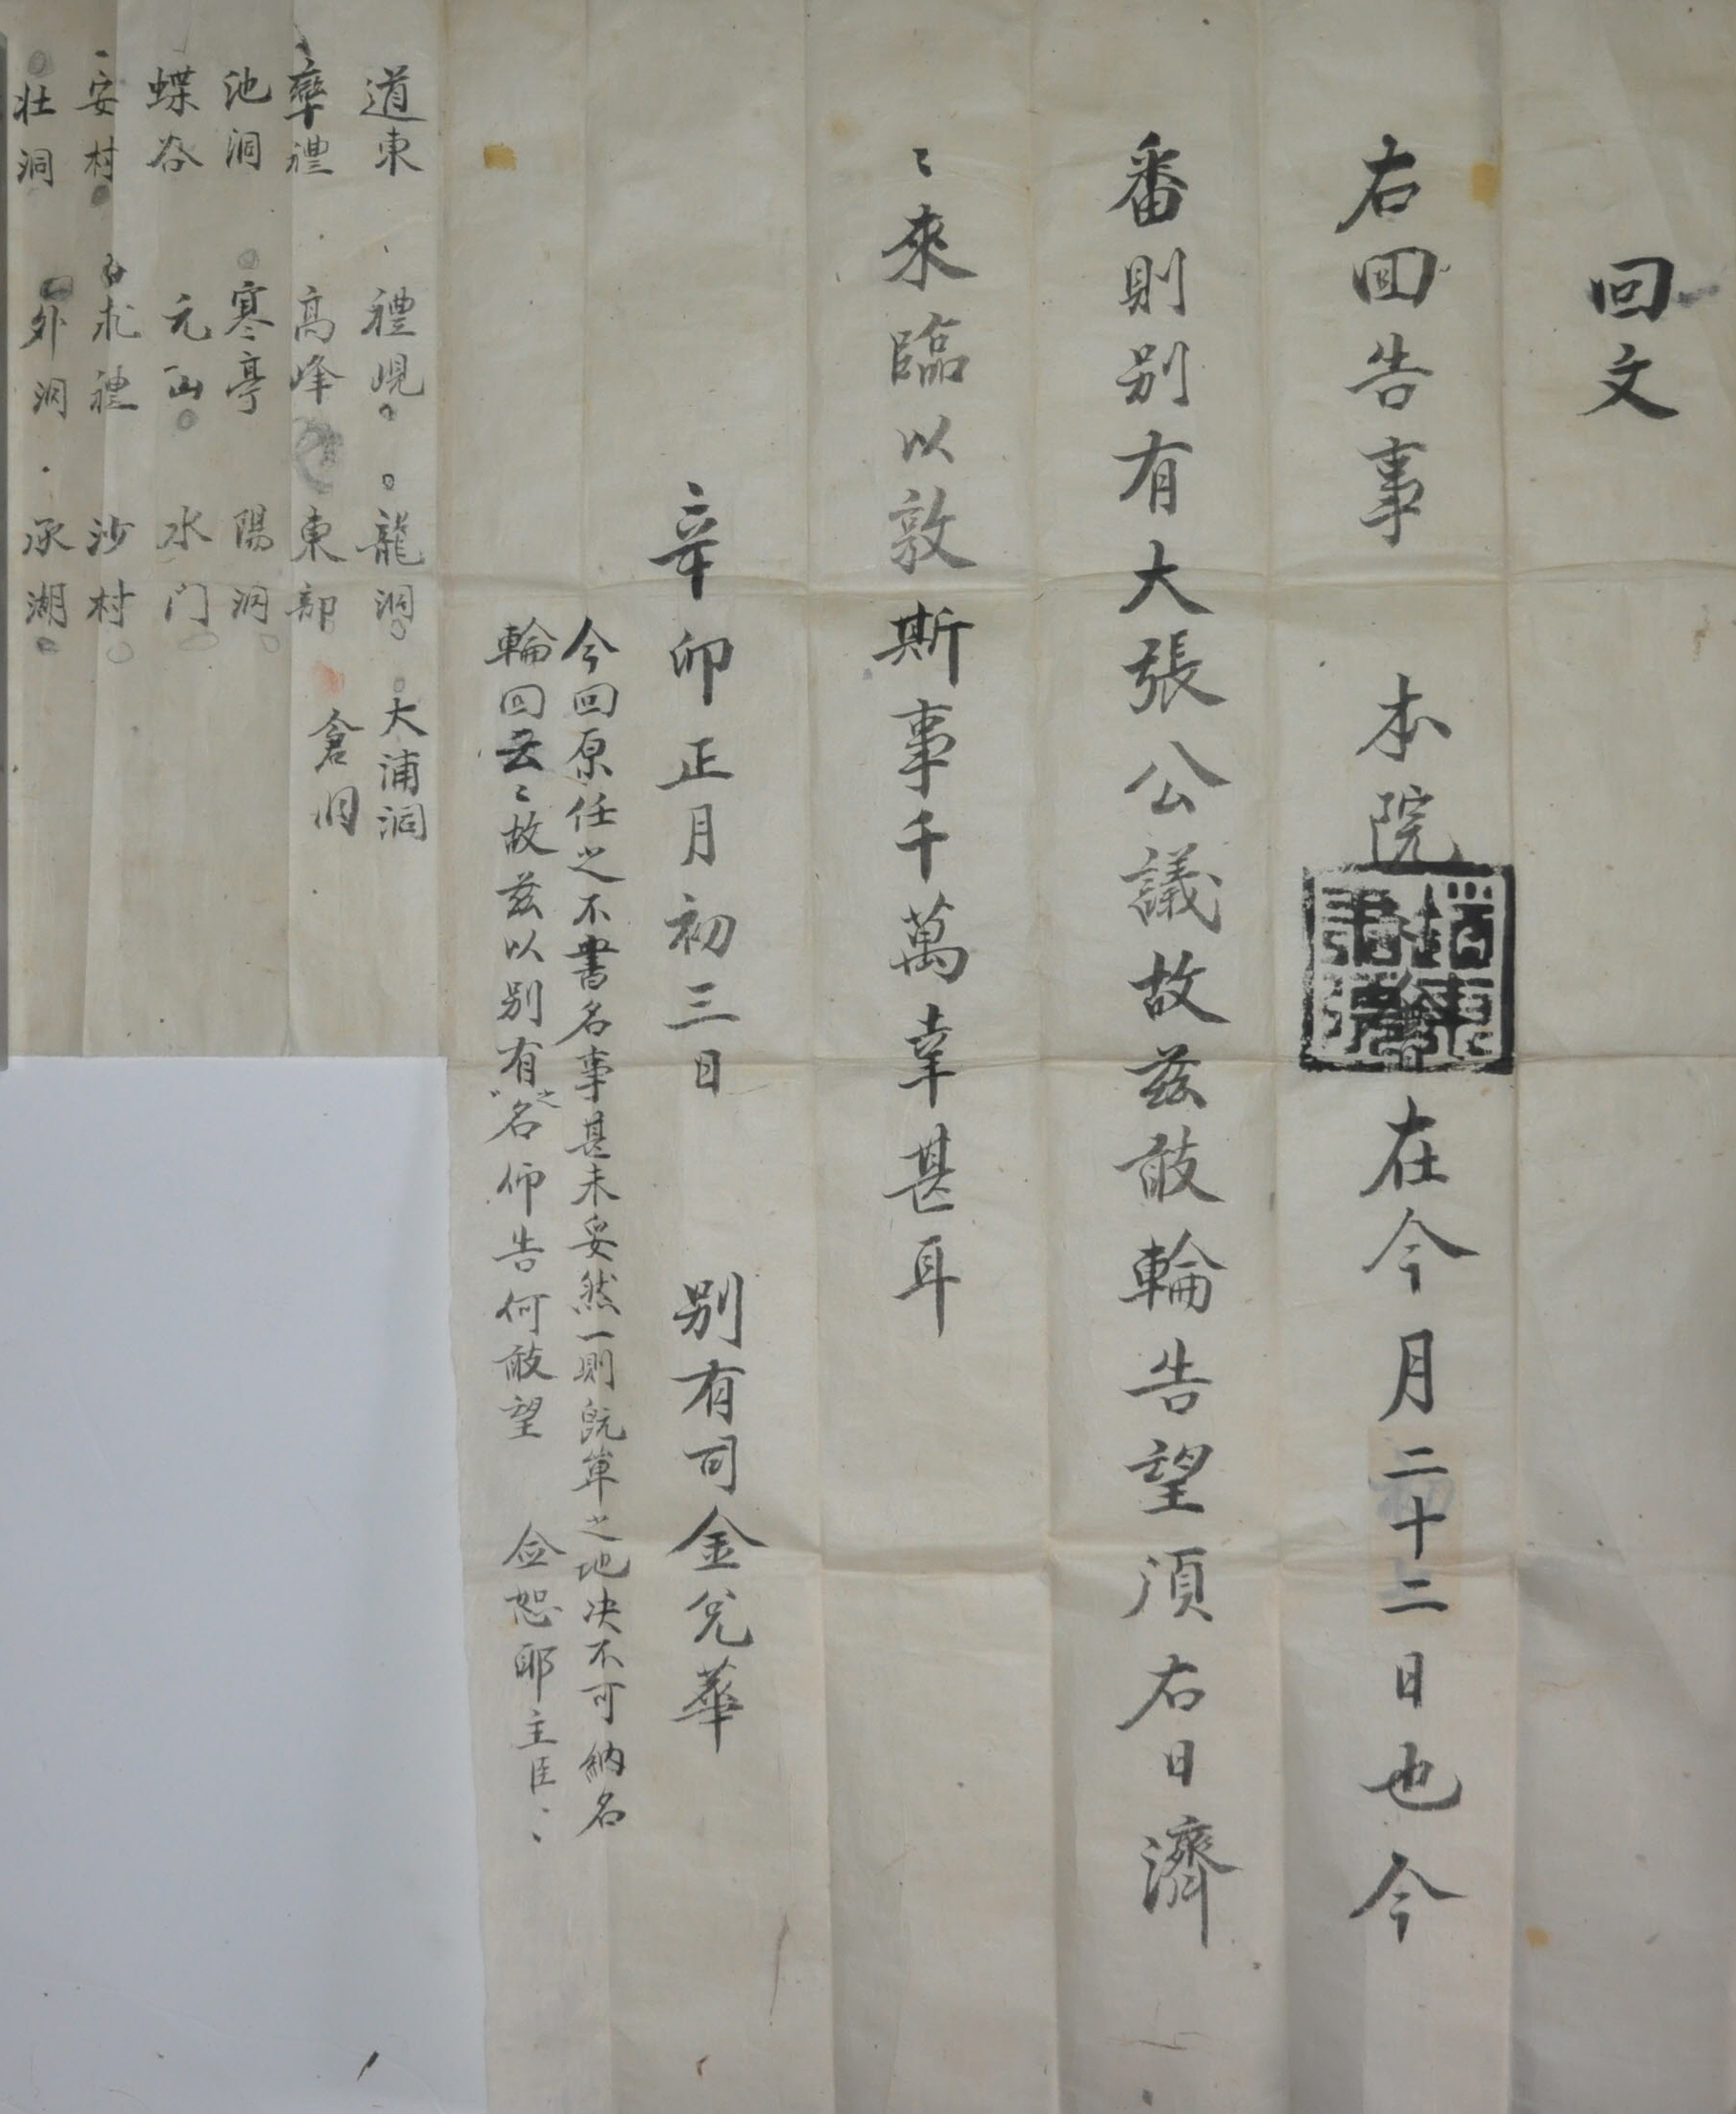 回文
右回告事 本院 在今月二十二日也今
番則别有大張公議故玆敢輪告望須右日濟
〻來臨以敦斯事千萬幸甚耳
辛卯正月初三日 别有司金兌華
今回原任之不書名事甚未妥然一則旣窄之地决不可納名
輪回云〻故玆以别有之名仰告何敢望 僉恕耶主臣〻
道東 禮峴 龍洞 大浦洞
禮 高峰 東部 倉洞
池洞 寒亭 陽洞
蝶谷 元山 水门
安村 禮 沙村
壯洞 外洞 承湖